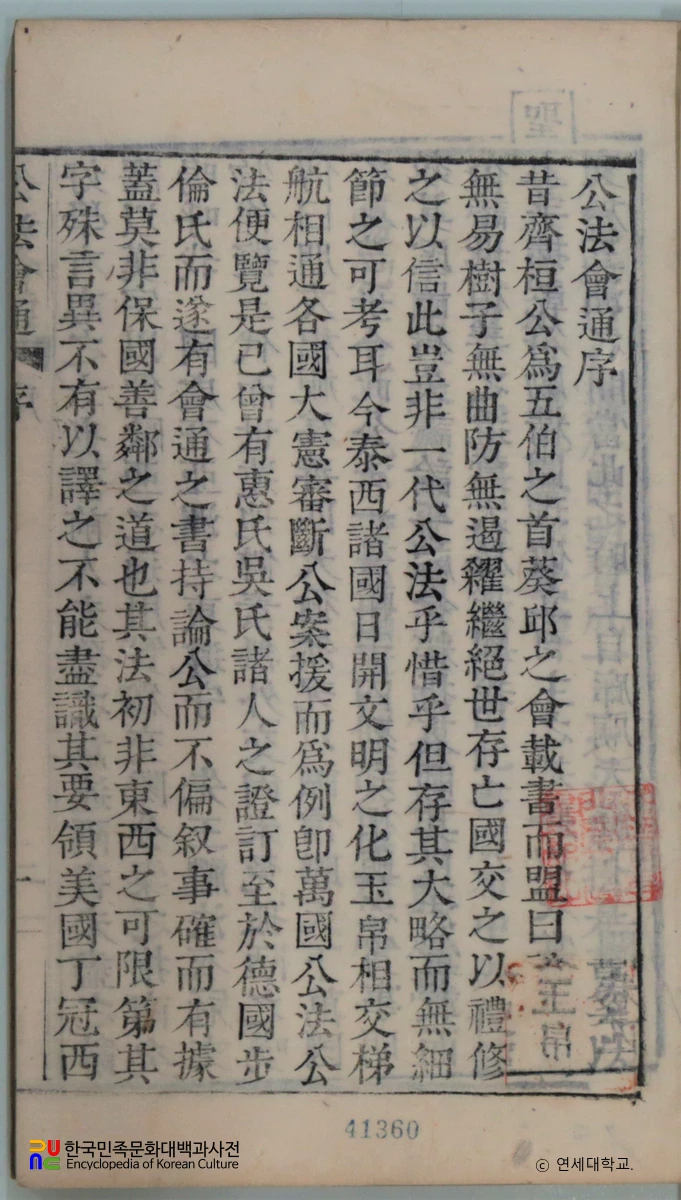 公法會通序
昔齊桓公爲五伯之首葵邱之會載書而盟曰
無易樹子無曲防無遏糴繼絕世存亡國交之以禮修
之以信此豈非一代公法乎惜乎但存其大略而無細
節之可考耳今泰西諸國日開文明之化玉帛相交梯
航相通各國大憲審斷公案援而爲例卽萬國公法公
法便覽是已曾有惠氏吳氏諸人之證訂至於德國步
倫氏而遂有會通之書持論公而不偏叙事確而有據
蓋莫非保國善鄰之道也其法初非東西之可限第其
字殊言異不有以譯之不能盡識其要領美國丁冠西
公法會通 序 一
41360
한국민족문화대백과사전
Encyclopedia of Korean Culture
© 연세대학교.